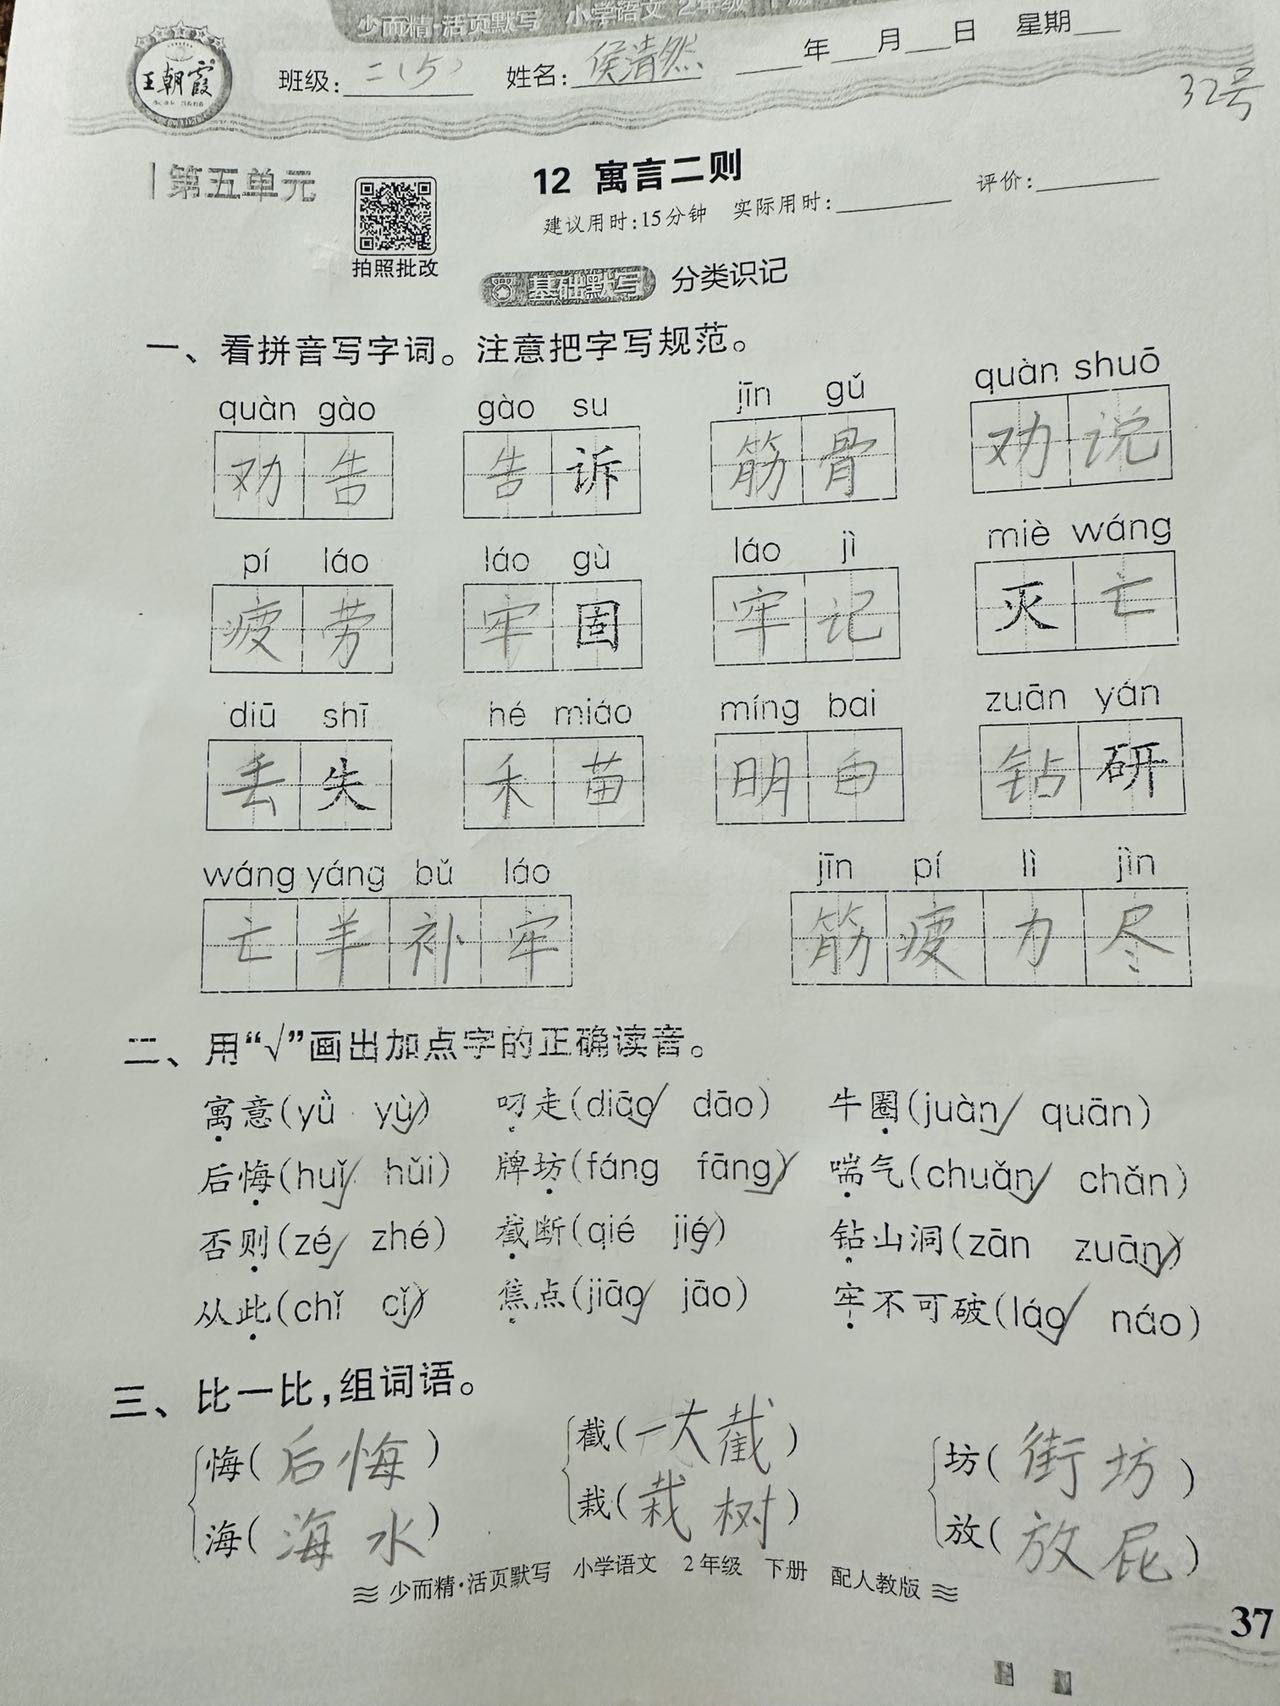 少而精·活页默写 小学语文 2年级
王朝霞
班级：二（5） 姓名：侯清然 ___年___月___日 星期___
32号
第五单元
12 寓言二则
评价：
建议用时：15分钟 实际用时：
拍照批改
基础默写 分类识记
一、看拼音写字词。注意把字写规范。
quàn gào gào su jīn gǔ quàn shuō
劝告 告诉 筋骨 劝说
pí láo láo gù láo jì miè wáng
疲劳 牢固 牢记 灭亡
diū shī hé miáo míng bai zuān yán
丢失 禾苗 明白 钻研
wáng yáng bǔ láo jīn pí lì jìn
亡羊补牢 筋疲力尽
二、用“√”画出加点字的正确读音。
寓意(yǜ yù√) 叼走(diāo√ dāo) 牛圈(juàn√ quān)
后悔(huǐ√ hǔi) 牌坊(fáng fāng√) 喘气(chuǎn√ chǎn)
否则(zé√ zhé) 截断(qié jié√) 钻山洞(zān zuān√)
从此(chǐ cǐ√) 焦点(jiāo√ jāo) 牢不可破(láo√ náo)
三、比一比，组词语。
悔(后悔) 截(一大截) 坊(街坊)
海(海水) 栽(栽树) 放(放屁)
少而精·活页默写 小学语文 2年级 下册 配人教版
37